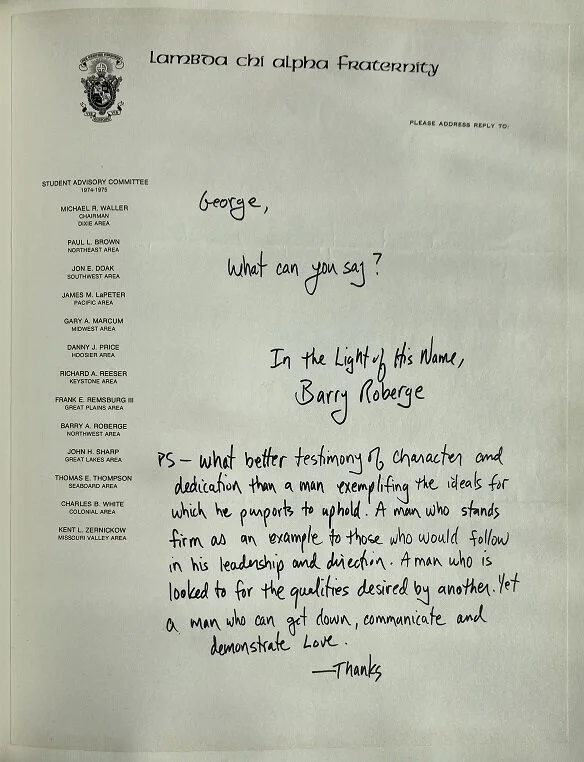 Lambda Chi Alpha Fraternity
PLEASE ADDRESS REPLY TO:
STUDENT ADVISORY COMMITTEE
1974-1975
MICHAEL R. WALLER
CHAIRMAN
DIXIE AREA
PAUL L. BROWN
NORTHEAST AREA
JON E. DOAK
SOUTHWEST AREA
JAMES M. LaPETER
PACIFIC AREA
GARY A. MARCUM
MIDWEST AREA
DANNY J. PRICE
HOOSIER AREA
RICHARD A. REESER
KEYSTONE AREA
FRANK E. REMSBURG III
GREAT PLAINS AREA
BARRY A. ROBERGE
NORTHWEST AREA
JOHN H. SHARP
GREAT LAKES AREA
THOMAS E. THOMPSON
SEABOARD AREA
CHARLES B. WHITE
COLONIAL AREA
KENT L. ZERNICKOW
MISSOURI VALLEY AREA
George,
What can you say?
In the Light of His Name,
Barry Roberge
PS – what better testimony of character and
dedication than a man exemplifing the ideals for
which he purports to uphold. A man who stands
firm as an example to those who would follow
in his leadership and direction. A man who is
looked to for the qualities desired by another. Yet
a man who can get down, communicate and
demonstrate Love.
—Thanks